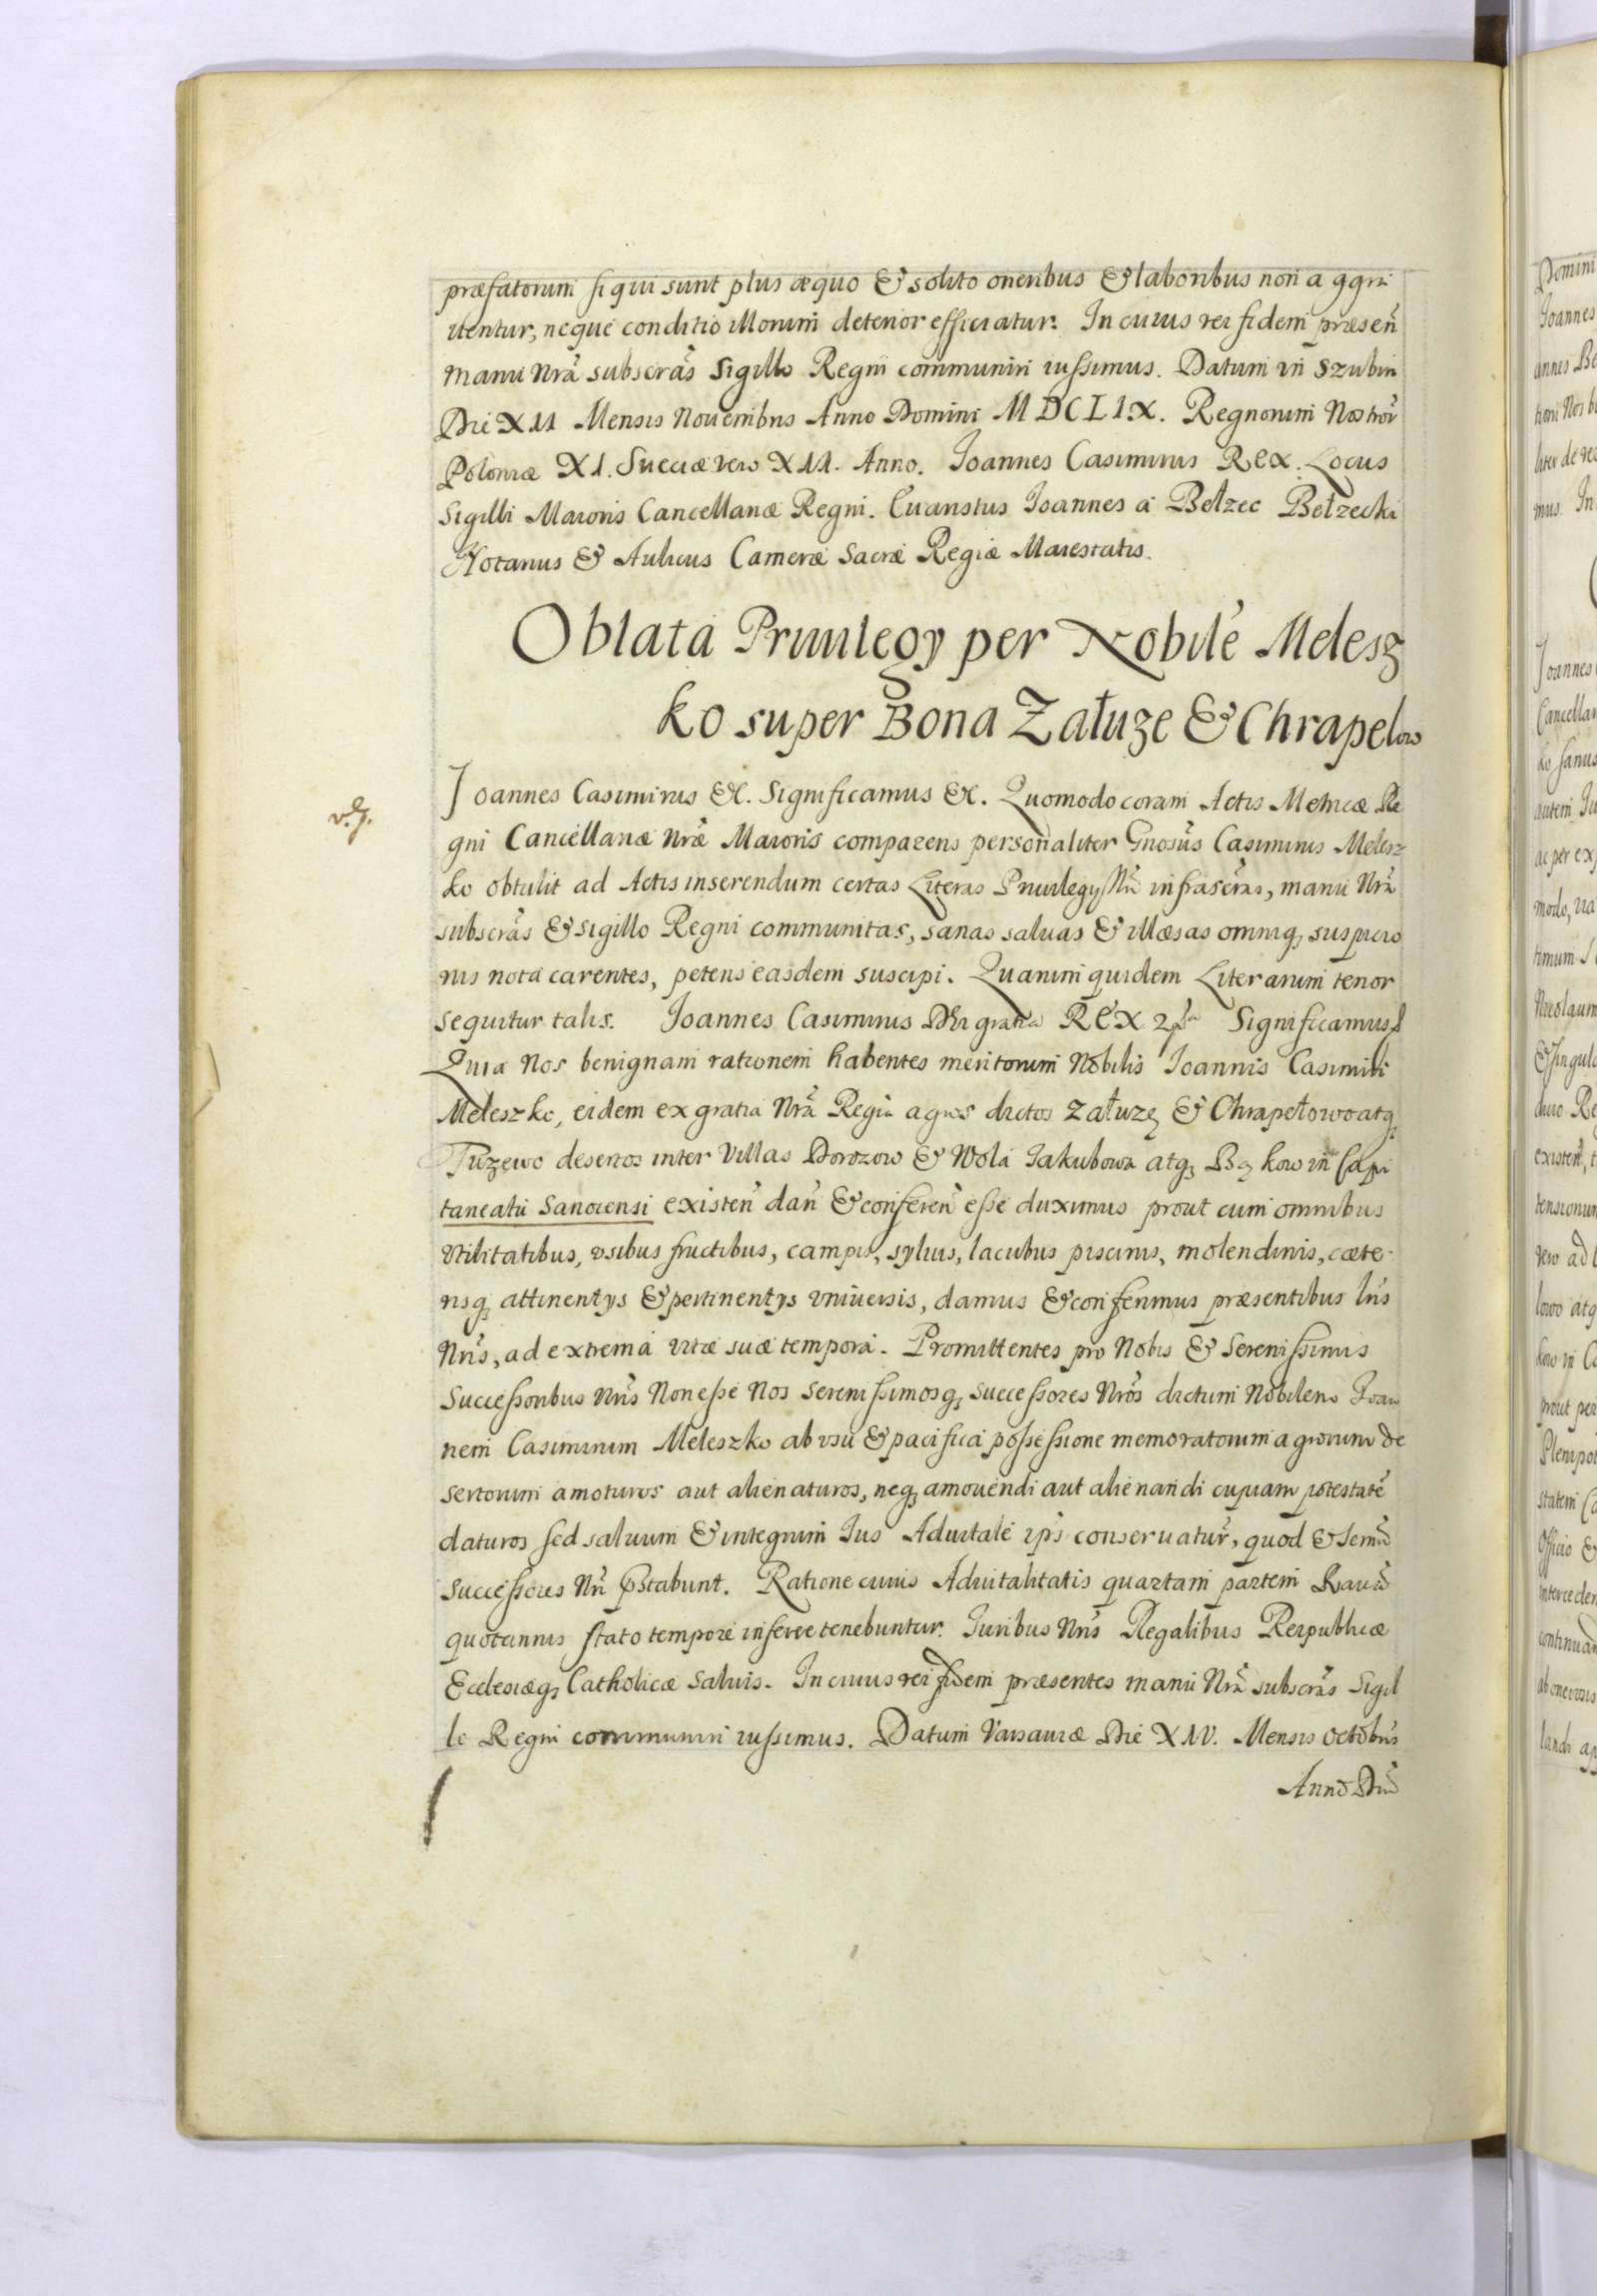 præfatorum si qui sunt plus æquo & solito oneribus & laboribus non aggra
uentur, neque conditio illorum deterior efficiatur. In cuius rei fidem præsen̄
manu Nrã subscrãs Sigillo Regni communiri iussimus. Datum in Szubin
Die XII Mensis Nouembris Anno Domini MDCLIX. Regnorum Nostror̃
Poloniæ XI. Sueciæ vero XII. Anno. Joannes Casimirus Rex. Locus
Sigilli Maioris Cancellariæ Regni. Euaristus Joannes a Bełzec Bełzecki
Notarius & Aulicus Cameræ Sacræ Regiæ Maiestatis.
Oblata Priuilegy per Nobilẽ Melesz
ko super Bona Załuze & Chrapelow
v. g.
Joannes Casimirus &c. Significamus &c. Quomodo coram Actis Metricæ Re
gni Cancellariæ Nrẽ Maioris comparens personaliter Gnosus̃ Casimirus Melesz
ko obtulit ad Actis inserendum certas Literas Priuilegy Nrĩ infrascrãs, manu Nrã
subscrãs & sigillo Regni communitas, sanas saluas & illæsas omniq; suspicio
nis nota carentes, petens easdem suscipi. Quarum quidem Literarum tenor
sequitur talis. Joannes Casimirus Dei gratia REX Significamus
Quia Nos benignam rationem habentes meritorum Nobilis Joannis Casimiri
Meleszko, eidem ex gratia Nrã Regia agros dictos Załuzę & Chrapełowo atq;
Tuzewo desertos inter Villas Dorozow & Wola Jakubowa atq; Bą kow in Capi
taneatu Sanocensi existen̄ dan̄ & conferen̄ esse duximus prout cum omnibus
Vtilitatibus, vsibus fructibus, campis, syluis, lacubus piscinis, molendinis, cæte
risq; attinentys & pertinentys vniuersis, damus & conferimus præsentibus lris̃
Nris̃, ad extrema vitæ suæ tempora. Promittentes pro Nobis & Serenissimis
Successoribus Nris̃ Non esse Nos Serenissimosq; successores Nros̃ dictum Nobilem Joan
nem Casimirum Meleszko ab vsu & pacifica possessione memoratorum agrorum de
sertorum amoturos aut alienaturos, neq; amouendi aut alienandi cuipiam potestatẽ
daturos sed saluum & integrum Jus Aduitale ipsi conseruatur̃, quod & Seren̄
Successores Nrĩ pstabunt. Ratione cuius Aduitalitatis quartam partem Rauã
quotannis stato tempore inferre tenebuntur. Juribus Nris̃ Regalibus Reipublicæ
Ecclesiæq; Catholicæ saluis. In cuius rei fidem præsentes manu Nrã subscrãs Sigil
lo Regni communiri iussimus. Datum Varsauiæ Die XIV. Mensis Octobris
Anno Dni